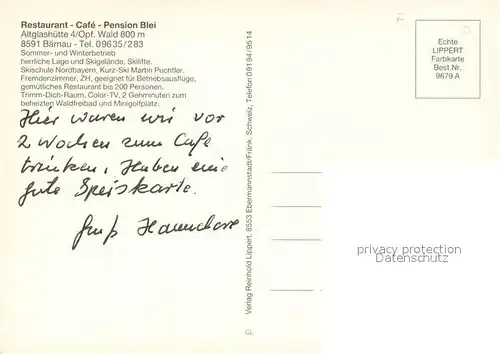 Restaurant - Café - Pension Blei
Altglashütte 4/Opf. Wald 800 m
8591 Bärnau - Tel. 09635/283
Sommer- und Winterbetrieb
herrliche Lage und Skigelände, Skilifte.
Skischule Nordbayern, Kurz-Ski Martin Puchtler.
Fremdenzimmer, ZH, geeignet für Betriebsausflüge,
gemütliches Restaurant bis 200 Personen.
Trimm-Dich-Raum, Color-TV, 2 Gehminuten zum
beheizten Waldfreibad und Minigolfplatz.
Hier waren wir vor
2 Wochen zum Cafe
trinken, Haben eine
gute Speiskarte.
Gruß Hannelore
Verlag Reinhold Lippert, 8553 Ebermannstadt/Fränk. Schweiz, Telefon 09194/9514
CL
Echte
LIPPERT
Farbkarte
Best.Nr.
9679 A
privacy protection
Datenschutz